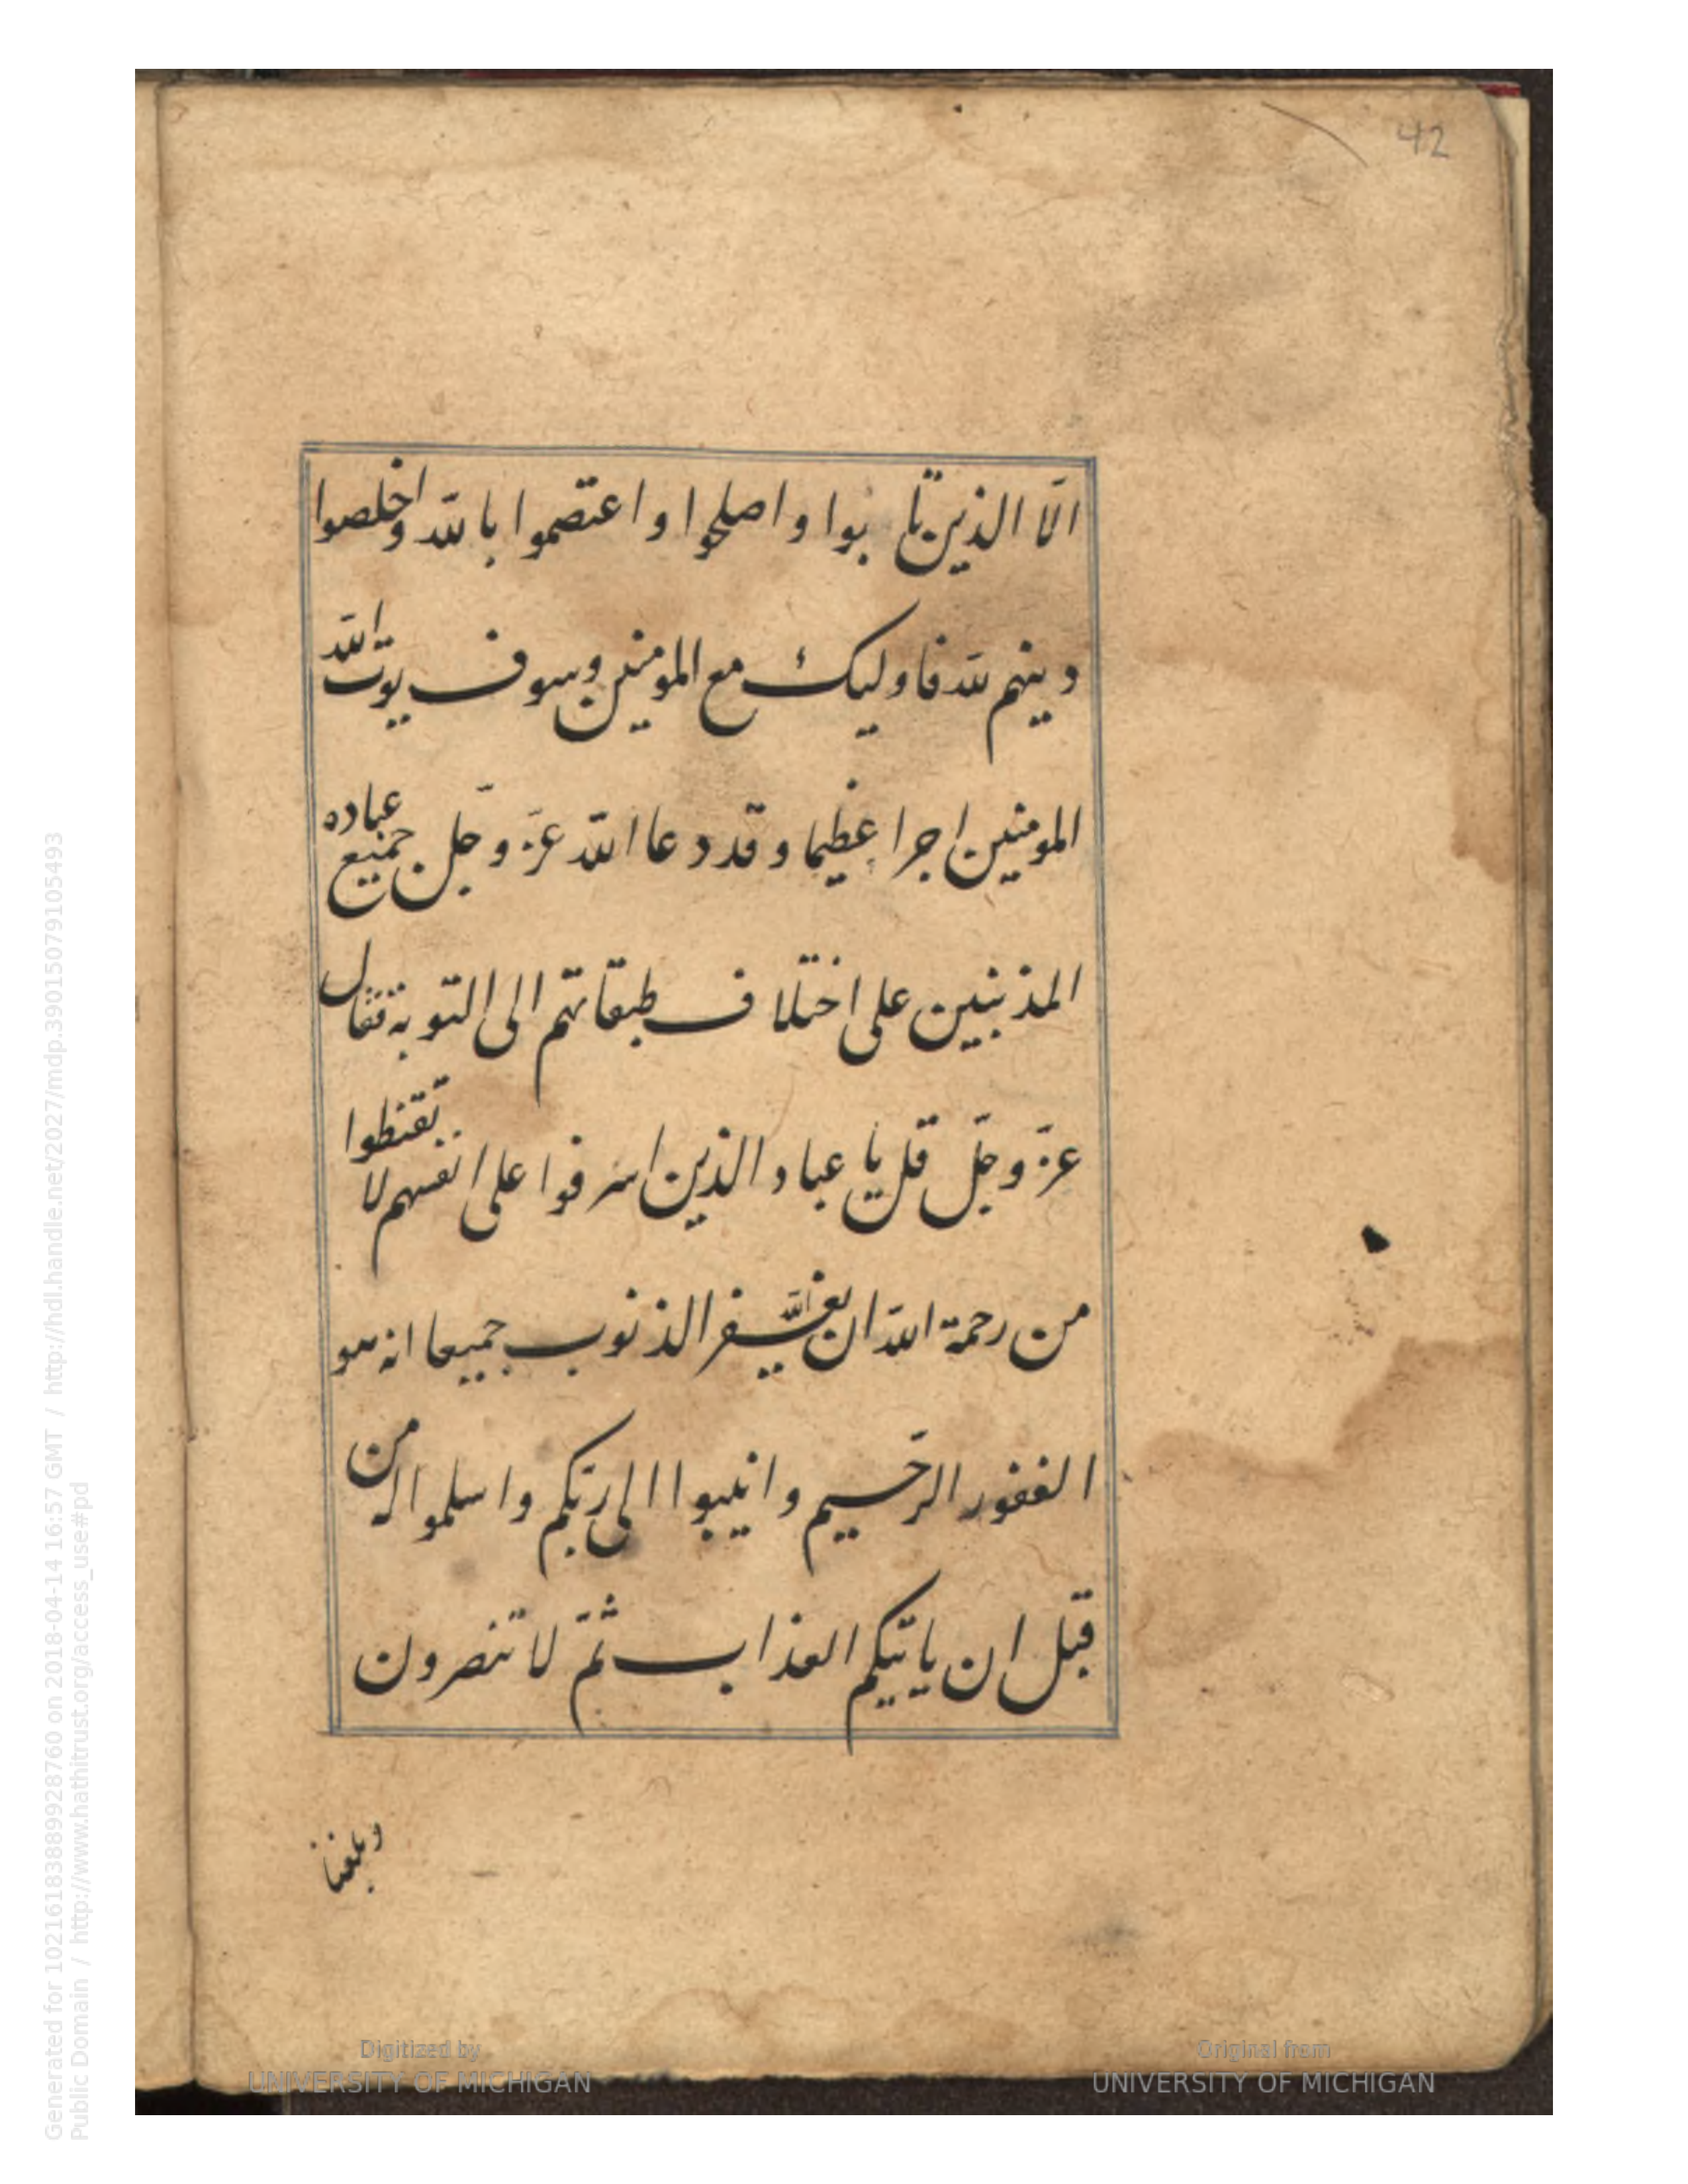 42
الّا الذين تا بوا واصلحوا واعتصموا بالله واخلصوا
دينهم لله فاوليك مع المومنين وسوف يوت الله
المومنين اجرا عظيما وقد دعا الله عزّ وجلّ جميع عباده
المذنبين على اختلاف طبقاتهم الى التوبة فقال
عزّ وجلّ قل يا عباد الذين اسرفوا على انفسهم لا تقنطوا
من رحمة الله ان الله يغفر الذنوب جميعا انه هو
الغفور الرحيم وانيبوا الى ربكم واسلموا له من
قبل ان ياتيكم العذاب ثمّ لا تنصرون
وبلغنا
Generated for 1021618388992876​0 on 2018-04-14 16:57 GMT / http://hdl.handle.net/2027/mdp.39015079105493
Public Domain / http://www.hathitrust.org/access_use#pd
Digitized by
UNIVERSITY OF MICHIGAN
Original from
UNIVERSITY OF MICHIGAN